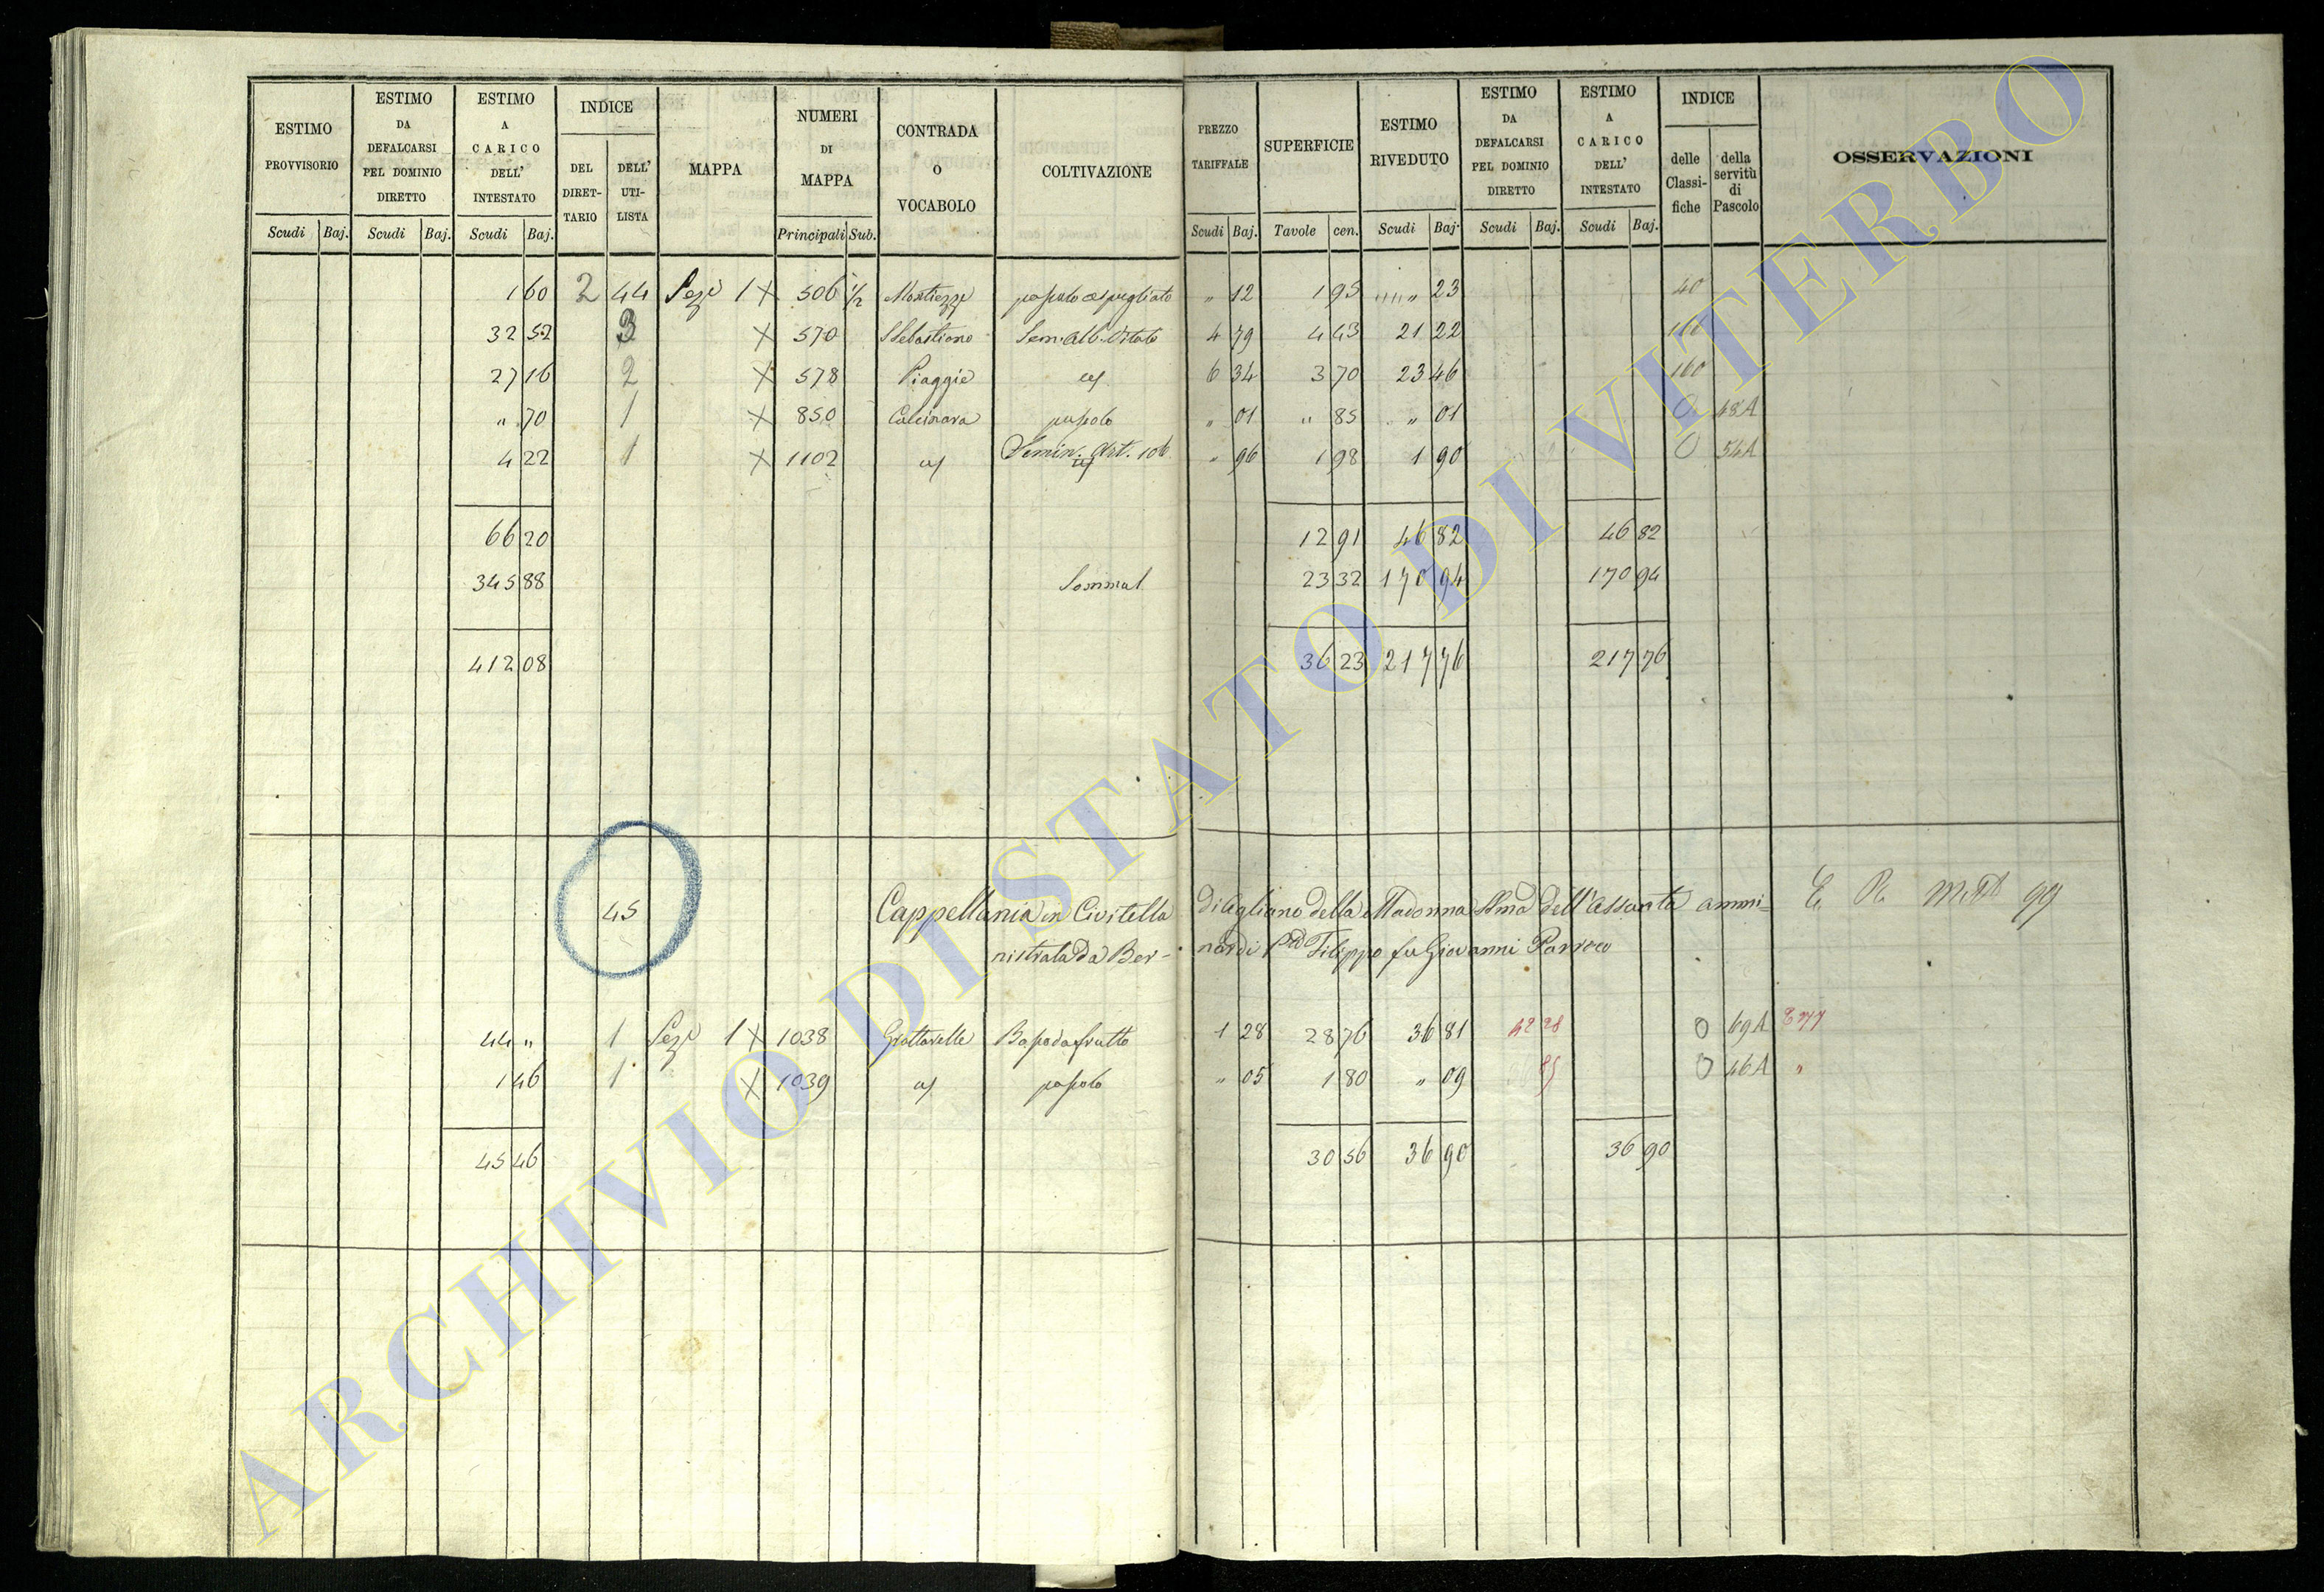 ESTIMO PROVVISORIO Scudi Baj.
ESTIMO DA DEFALCARSI PEL DOMINIO DIRETTO Scudi Baj.
ESTIMO A CARICO DELL' INTESTATO Scudi Baj.
INDICE DEL DIRET-TARIO DELL' UTI-LISTA
MAPPA
NUMERI DI MAPPA Principali Sub.
CONTRADA O VOCABOLO
COLTIVAZIONE
PREZZO TARIFFALE Scudi Baj.
SUPERFICIE Tavole cen.
ESTIMO RIVEDUTO Scudi Baj.
ESTIMO DA DEFALCARSI PEL DOMINIO DIRETTO Scudi Baj.
ESTIMO A CARICO DELL' INTESTATO Scudi Baj.
INDICE delle Classi-fiche della servitù di Pascolo
OSSERVAZIONI
1 60 2 44 Sezi 1 X 506 1/2 pascolo cespugliato " 12 1 95 " 23 40
32 52 3 X 570 S Sebastiano Sem. Alb. Vitato 4 79 4 43 21 22 160
27 16 2 X 578 Piaggie 6 34 3 70 23 46 160
" 70 1 X 850 Calcinara pascolo " 01 " 85 " 01 0 48A
4 22 1 X 1102 Semin. Art. 106 " 96 1 98 1 90 0 54A
66 20 12 91 46 82 46 82
345 88 Somma l 23 32 170 94 170 94
412 08 36 23 217 76 217 76
45 Cappellania in Civitella di Agliano della Madonna SSma dell'Assunta ammi=
nistrata da Ber- nardi Filippo fu Giovanni Parroco
44 " 1 Sezi 1 X 1038 Grottarelle Bo. da frutto 1 28 28 76 36 81 42 28 0 69A
1 46 1 X 1039 pascolo " 05 1 80 " 09 85 0 46A "
45 46 30 56 36 90 36 90
ARCHIVIO DI STATO DI VITERBO